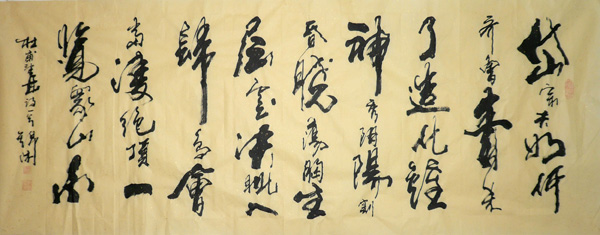 岱宗夫如何
齊魯青未
了造化鍾
神秀陰陽割
昏曉盪胸生
層雲決眥入
歸鳥會
當凌絕頂一
覽眾山小
杜甫望岳詩一首